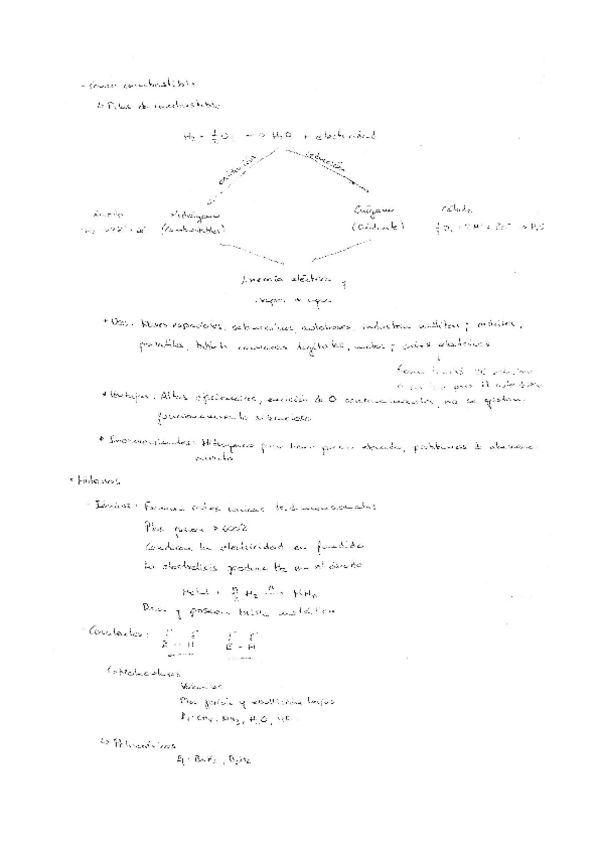 - Como combustible
↳ Pilas de combustible
H₂ + ½O₂ → H₂O + electricidad
oxidación reducción
Ánodo Hidrógeno Oxígeno Cátodo
(Combustible) (Oxidante)
Energía eléctrica y
vapor de agua
• Usos: Naves espaciales, submarinos, autobuses, industria militar; móviles,
portátiles, cámaras digitales, motos; coches eléctricos
• Ventajas: Altas eficiencias, emisión de 0 contaminantes, no se gastan
funcionamiento silencioso
• Inconvenientes: Hidrógeno puro tiene precio elevado, problemas de almacena-
miento
• Hidruros
- Iónicos: Forman redes iónicas tridimensionales
Ptos fusión > 600ºC
Conducen la electricidad en fundido
La electrolisis produce H₂ en el ánodo
Duros y poseen brillo metálico
- Covalentes:
E - H E - H
↳ Moleculares
Volátiles
Ptos fusión y ebullición bajos
Ej: CH₄, NH₃, H₂O, HF
↳ Poliméricos
Ej: BeH₂, B₂H₆